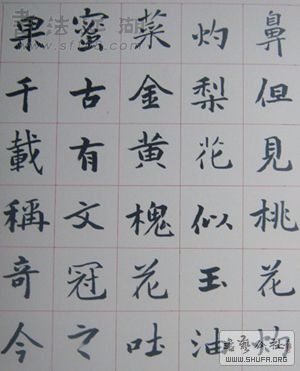 鼻但見桃花灼
灼梨花似玉油
菜金黄槐花吐
蜜古有文冠之
果千載稱奇今
WWW.SHUFA.ORG